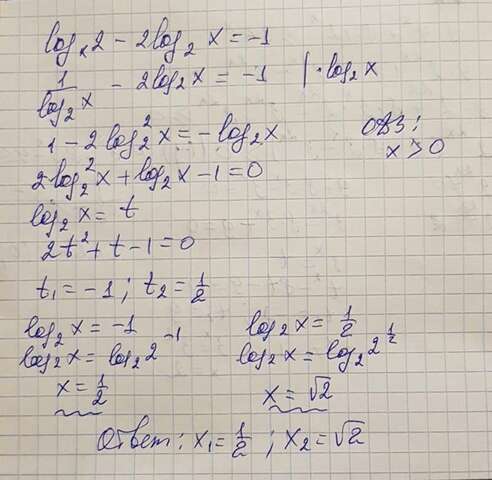 logₓ2 − 2log₂ x = −1
1/log₂x − 2log₂x = −1 | · log₂x
1 − 2log₂²x = −log₂x
ОДЗ:
x > 0
2log₂²x + log₂x − 1 = 0
log₂ x = t
2t² + t − 1 = 0
t₁ = −1 ; t₂ = 1/2
log₂ x = −1
log₂x = log₂ 2⁻¹
x = 1/2
log₂ x = 1/2
log₂x = log₂ 2^(1/2)
x = √2
Ответ: x₁ = 1/2 ; x₂ = √2